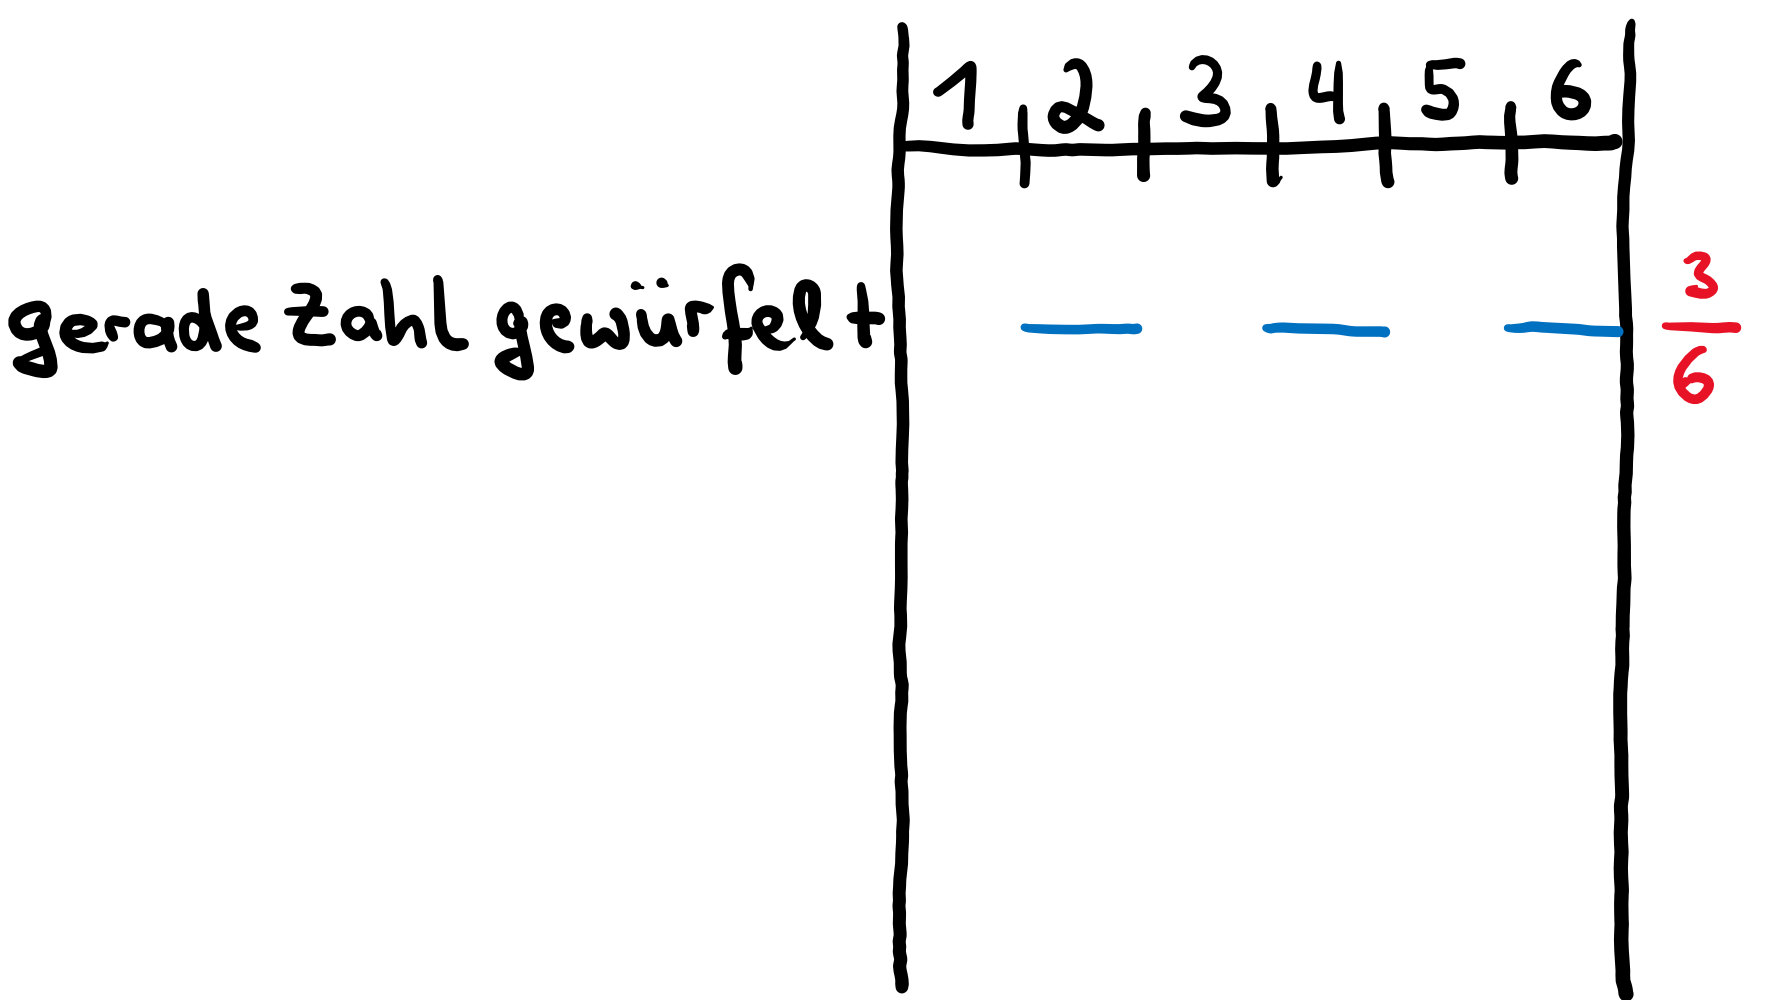 1 2 3 4 5 6
gerade Zahl gewürfelt
3
6